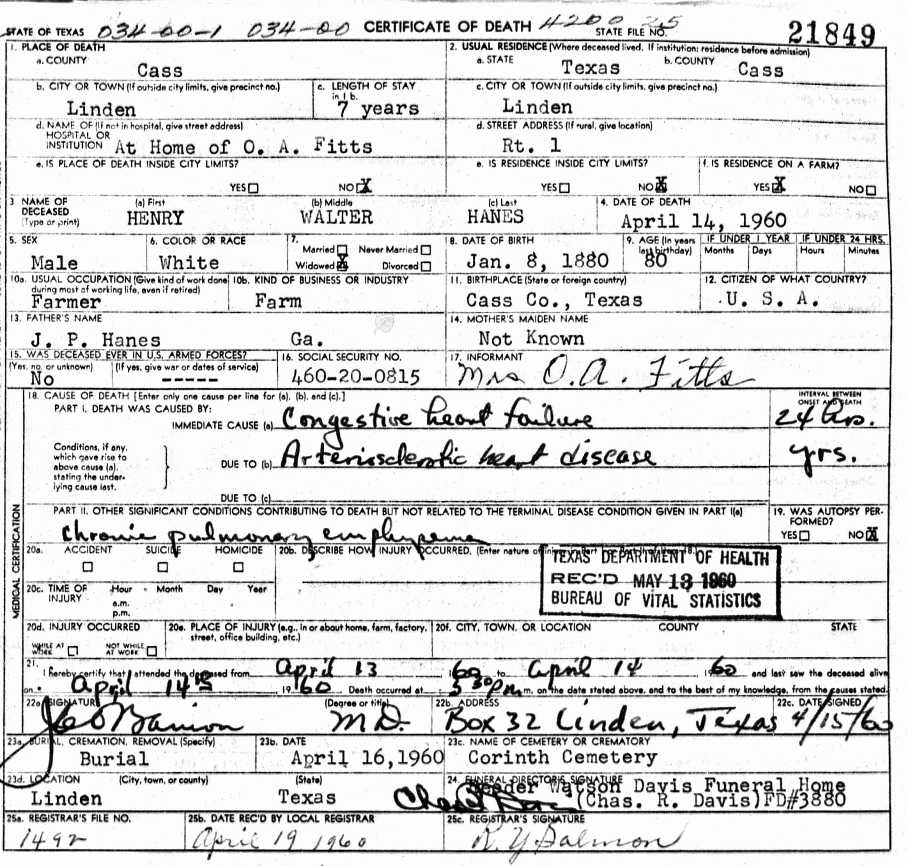 STATE OF TEXAS 034-00-1 034-00 CERTIFICATE OF DEATH 4200 25 STATE FILE NO. 21849
1. PLACE OF DEATH
a. COUNTY
Cass
2. USUAL RESIDENCE (Where deceased lived. If institution: residence before admission)
a. STATE Texas b. COUNTY Cass
b. CITY OR TOWN (If outside city limits, give precinct no.)
Linden
c. LENGTH OF STAY in 1 b.
7 years
c. CITY OR TOWN (If outside city limits, give precinct no.)
Linden
d. NAME OF (If not in hospital, give street address)
HOSPITAL OR
INSTITUTION At Home of O. A. Fitts
d. STREET ADDRESS (If rural, give location)
Rt. 1
e. IS PLACE OF DEATH INSIDE CITY LIMITS?
YES NO X
e. IS RESIDENCE INSIDE CITY LIMITS?
YES NO X
f. IS RESIDENCE ON A FARM?
YES X NO
3 NAME OF DECEASED (Type or print)
(a) First (b) Middle (c) Last
HENRY WALTER HANES
4. DATE OF DEATH
April 14, 1960
5. SEX
Male
6. COLOR OR RACE
White
7.
Married Never Married
Widowed X Divorced
8. DATE OF BIRTH
Jan. 8, 1880
9. AGE (In years last birthday)
80
IF UNDER 1 YEAR
Months Days
IF UNDER 24 HRS.
Hours Minutes
10a. USUAL OCCUPATION (Give kind of work done during most of working life, even if retired)
Farmer
10b. KIND OF BUSINESS OR INDUSTRY
Farm
11. BIRTHPLACE (State or foreign country)
Cass Co., Texas
12. CITIZEN OF WHAT COUNTRY?
U. S. A.
13. FATHER'S NAME
J. P. Hanes Ga.
14. MOTHER'S MAIDEN NAME
Not Known
15. WAS DECEASED EVER IN U.S. ARMED FORCES?
(Yes, no, or unknown) (If yes, give war or dates of service)
No -----
16. SOCIAL SECURITY NO.
460-20-0815
17. INFORMANT
Mrs O.A. Fitts
MEDICAL CERTIFICATION
18. CAUSE OF DEATH [Enter only one cause per line for (a). (b). and (c).]
PART I. DEATH WAS CAUSED BY:
INTERVAL BETWEEN ONSET AND DEATH
IMMEDIATE CAUSE (a) Congestive heart failure 24 hrs.
Conditions, if any, which gave rise to above cause (a), stating the underlying cause last.
DUE TO (b) Arteriosclerotic heart disease yrs.
DUE TO (c)
PART II. OTHER SIGNIFICANT CONDITIONS CONTRIBUTING TO DEATH BUT NOT RELATED TO THE TERMINAL DISEASE CONDITION GIVEN IN PART I(a)
chronic pulmonary emphysema
19. WAS AUTOPSY PERFORMED?
YES NO X
20a. ACCIDENT SUICIDE HOMICIDE
20b. DESCRIBE HOW INJURY OCCURRED. (Enter nature of
TEXAS DEPARTMENT OF HEALTH
REC'D MAY 13 1960
BUREAU OF VITAL STATISTICS
20c. TIME OF INJURY
Hour Month Day Year
a.m.
p.m.
20d. INJURY OCCURRED
WHILE AT WORK NOT WHILE AT WORK
20e. PLACE OF INJURY (e.g., in or about home, farm, factory, street, office building, etc.)
20f. CITY, TOWN, OR LOCATION COUNTY STATE
21. I hereby certify that I attended the deceased from April 13 60 to April 14 1960 and last saw the deceased alive
on April 14th 1960 Death occurred at 5 30 p.m. m. on the date stated above, and to the best of my knowledge, from the causes stated.
22a. SIGNATURE (Degree or title)
M.D.
22b. ADDRESS
Box 32 Linden, Texas
22c. DATE SIGNED
4/15/60
23a. BURIAL, CREMATION, REMOVAL (Specify)
Burial
23b. DATE
April 16, 1960
23c. NAME OF CEMETERY OR CREMATORY
Corinth Cemetery
23d. LOCATION (City, town, or county) (State)
Linden Texas
24. FUNERAL DIRECTOR'S SIGNATURE
Reeder Watson Davis Funeral Home
(Chas. R. Davis) FD#3880
25a. REGISTRAR'S FILE NO.
1492
25b. DATE REC'D BY LOCAL REGISTRAR
April 19 1960
25c. REGISTRAR'S SIGNATURE
R. Y. Salmon